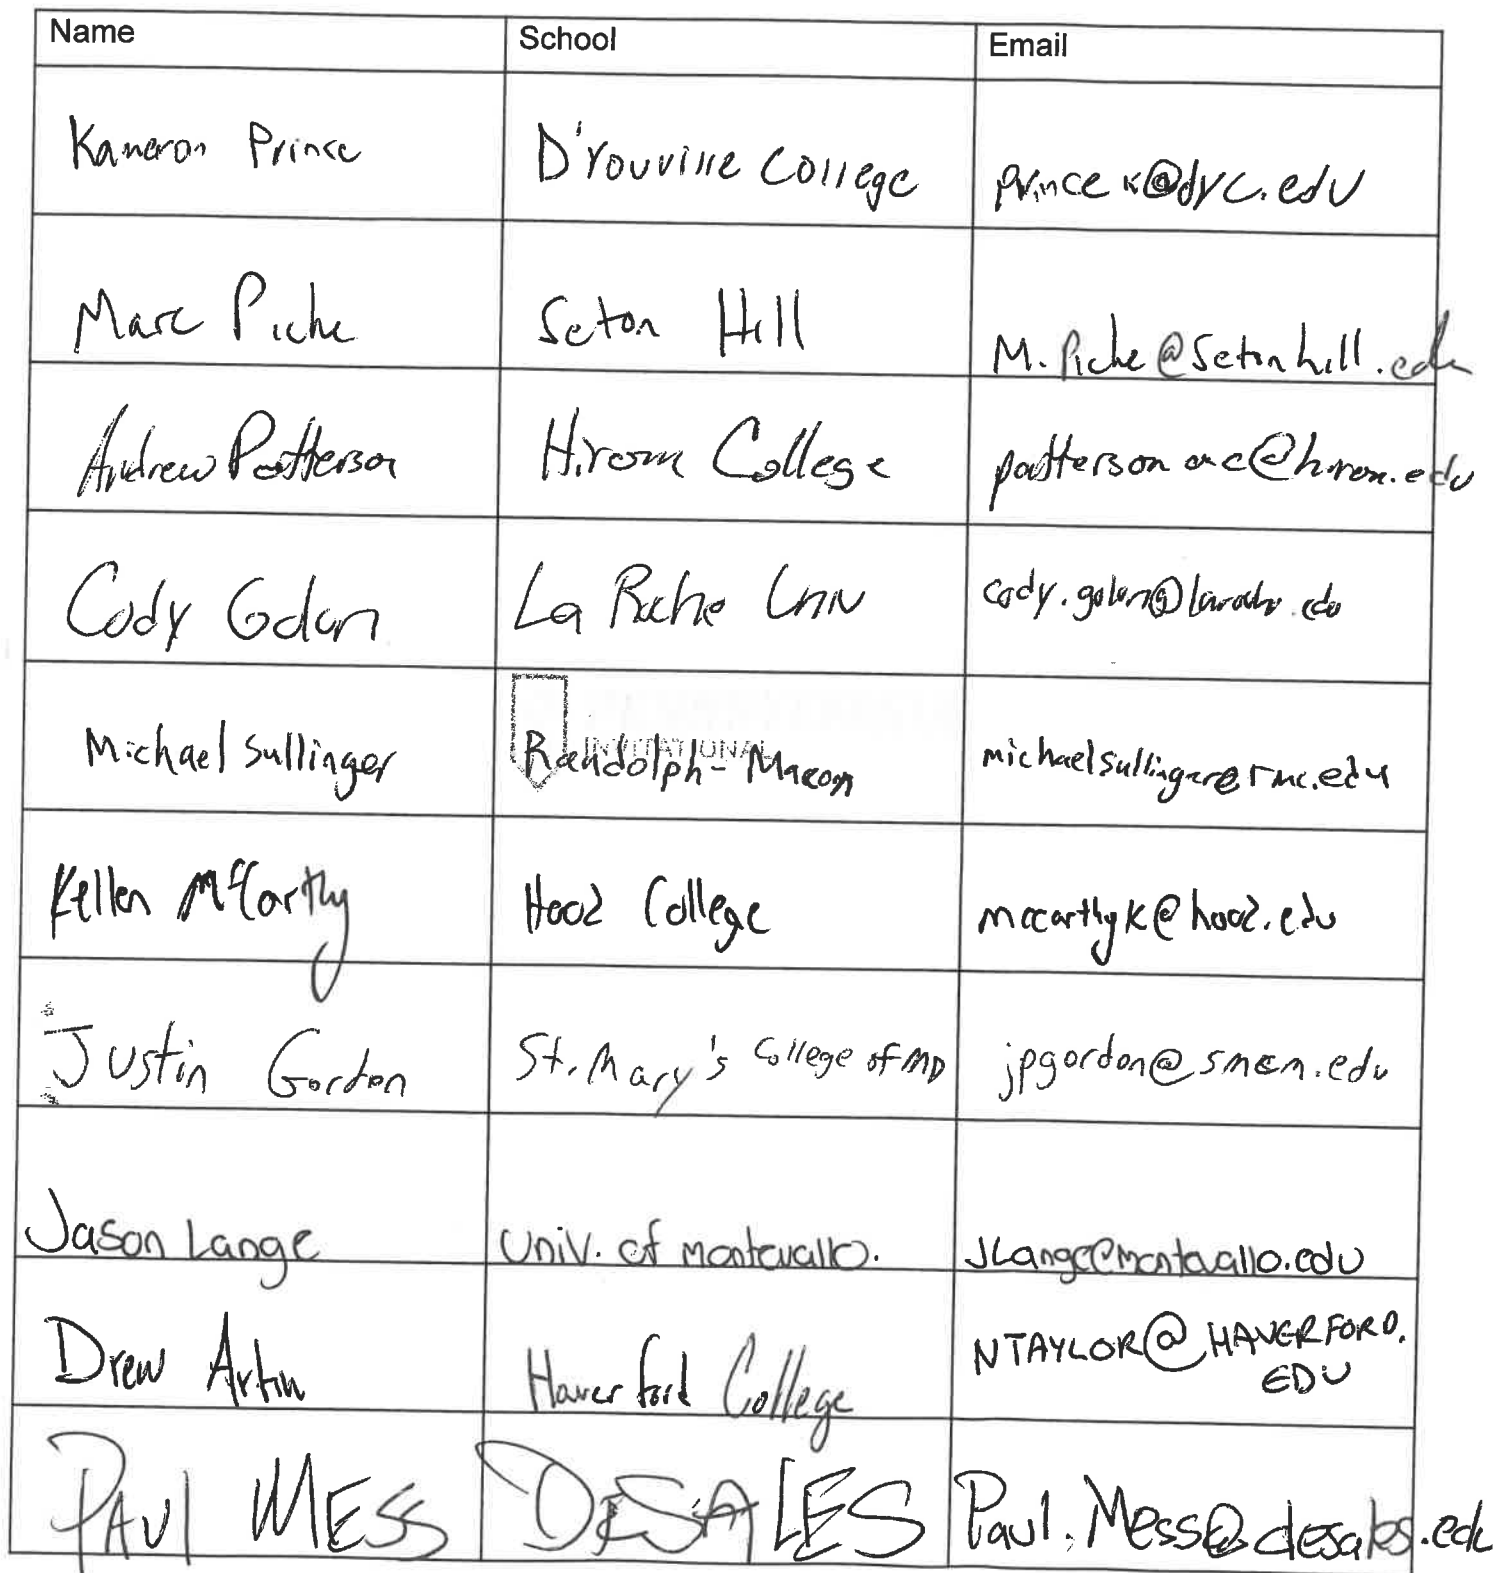 Name School Email
Kameron Prince D'Youville College princek@dyc.edu
Marc Piche Seton Hill M.Piche@Setonhill.edu
Andrew Patterson Hiram College pattersonac@hiram.edu
Cody Golon La Roche Univ cody.golon@laroche.edu
INVITATIONAL
Michael Sullinger Randolph-Macon michaelsullinger@rmc.edu
Kellen McCarthy Hood College mccarthyk@hood.edu
Justin Gorton St. Mary's College of MD jpgordon@smcm.edu
Jason Lange Univ. of Montevallo. JLange@montevallo.edu
Drew Haverford College NTAYLOR@HAVERFORD.
EDU
PAUl MESS DESALES Paul.Mess@desales.edu